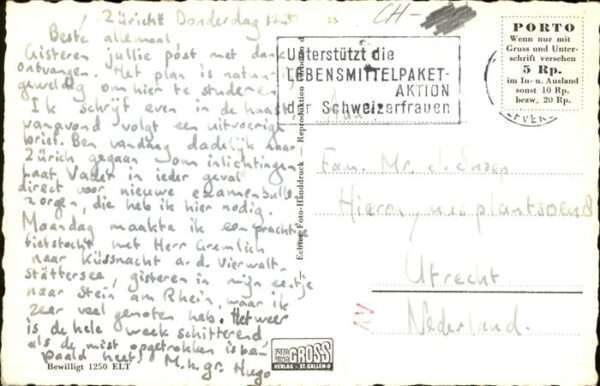 Zürich Donderdag
Beste allemaal
Gisteren jullie post met dank
ontvangen. Het plan is natuur
geweldig om hier te studeren,
Ik schrijf even in de haast
vanavond volgt een uitvoerig
brief. Ben vandaag dadelijk naar
Zürich gegaan om inlichtingen
Laat Vader in ieder geval
direct voor nieuwe examenbulle
zorgen, die heb ik hier nodig.
Maandag maakte ik een pracht
fietstocht met Herr Gremlich
naar Küssnacht a.d. Vierwalt-
stättersee, gisteren in mijn eentje
naar Stein am Rhein, waar ik
zeer veel genoten heb. Het weer
is de hele week schitterend
als de mist opgetrokken is ba-
paald heet. M.h.gr. Hugo
Bewilligt 1250 ELT
Echter Foto-Handdruck — Reproduktion
GROSS
VERLAG - ST. GALLEN
CH-
Unterstützt die
LEBENSMITTELPAKET-
AKTION
der Schweizerfrauen
PORTO
Wenn nur mit
Gruss und Unter-
schrift versehen
5 Rp.
im In- u. Ausland
sonst 10 Rp.
bezw. 20 Rp.
Fam. Mr. J. Snoep
Hieronymusplantsoen 8
Utrecht
Nederland.